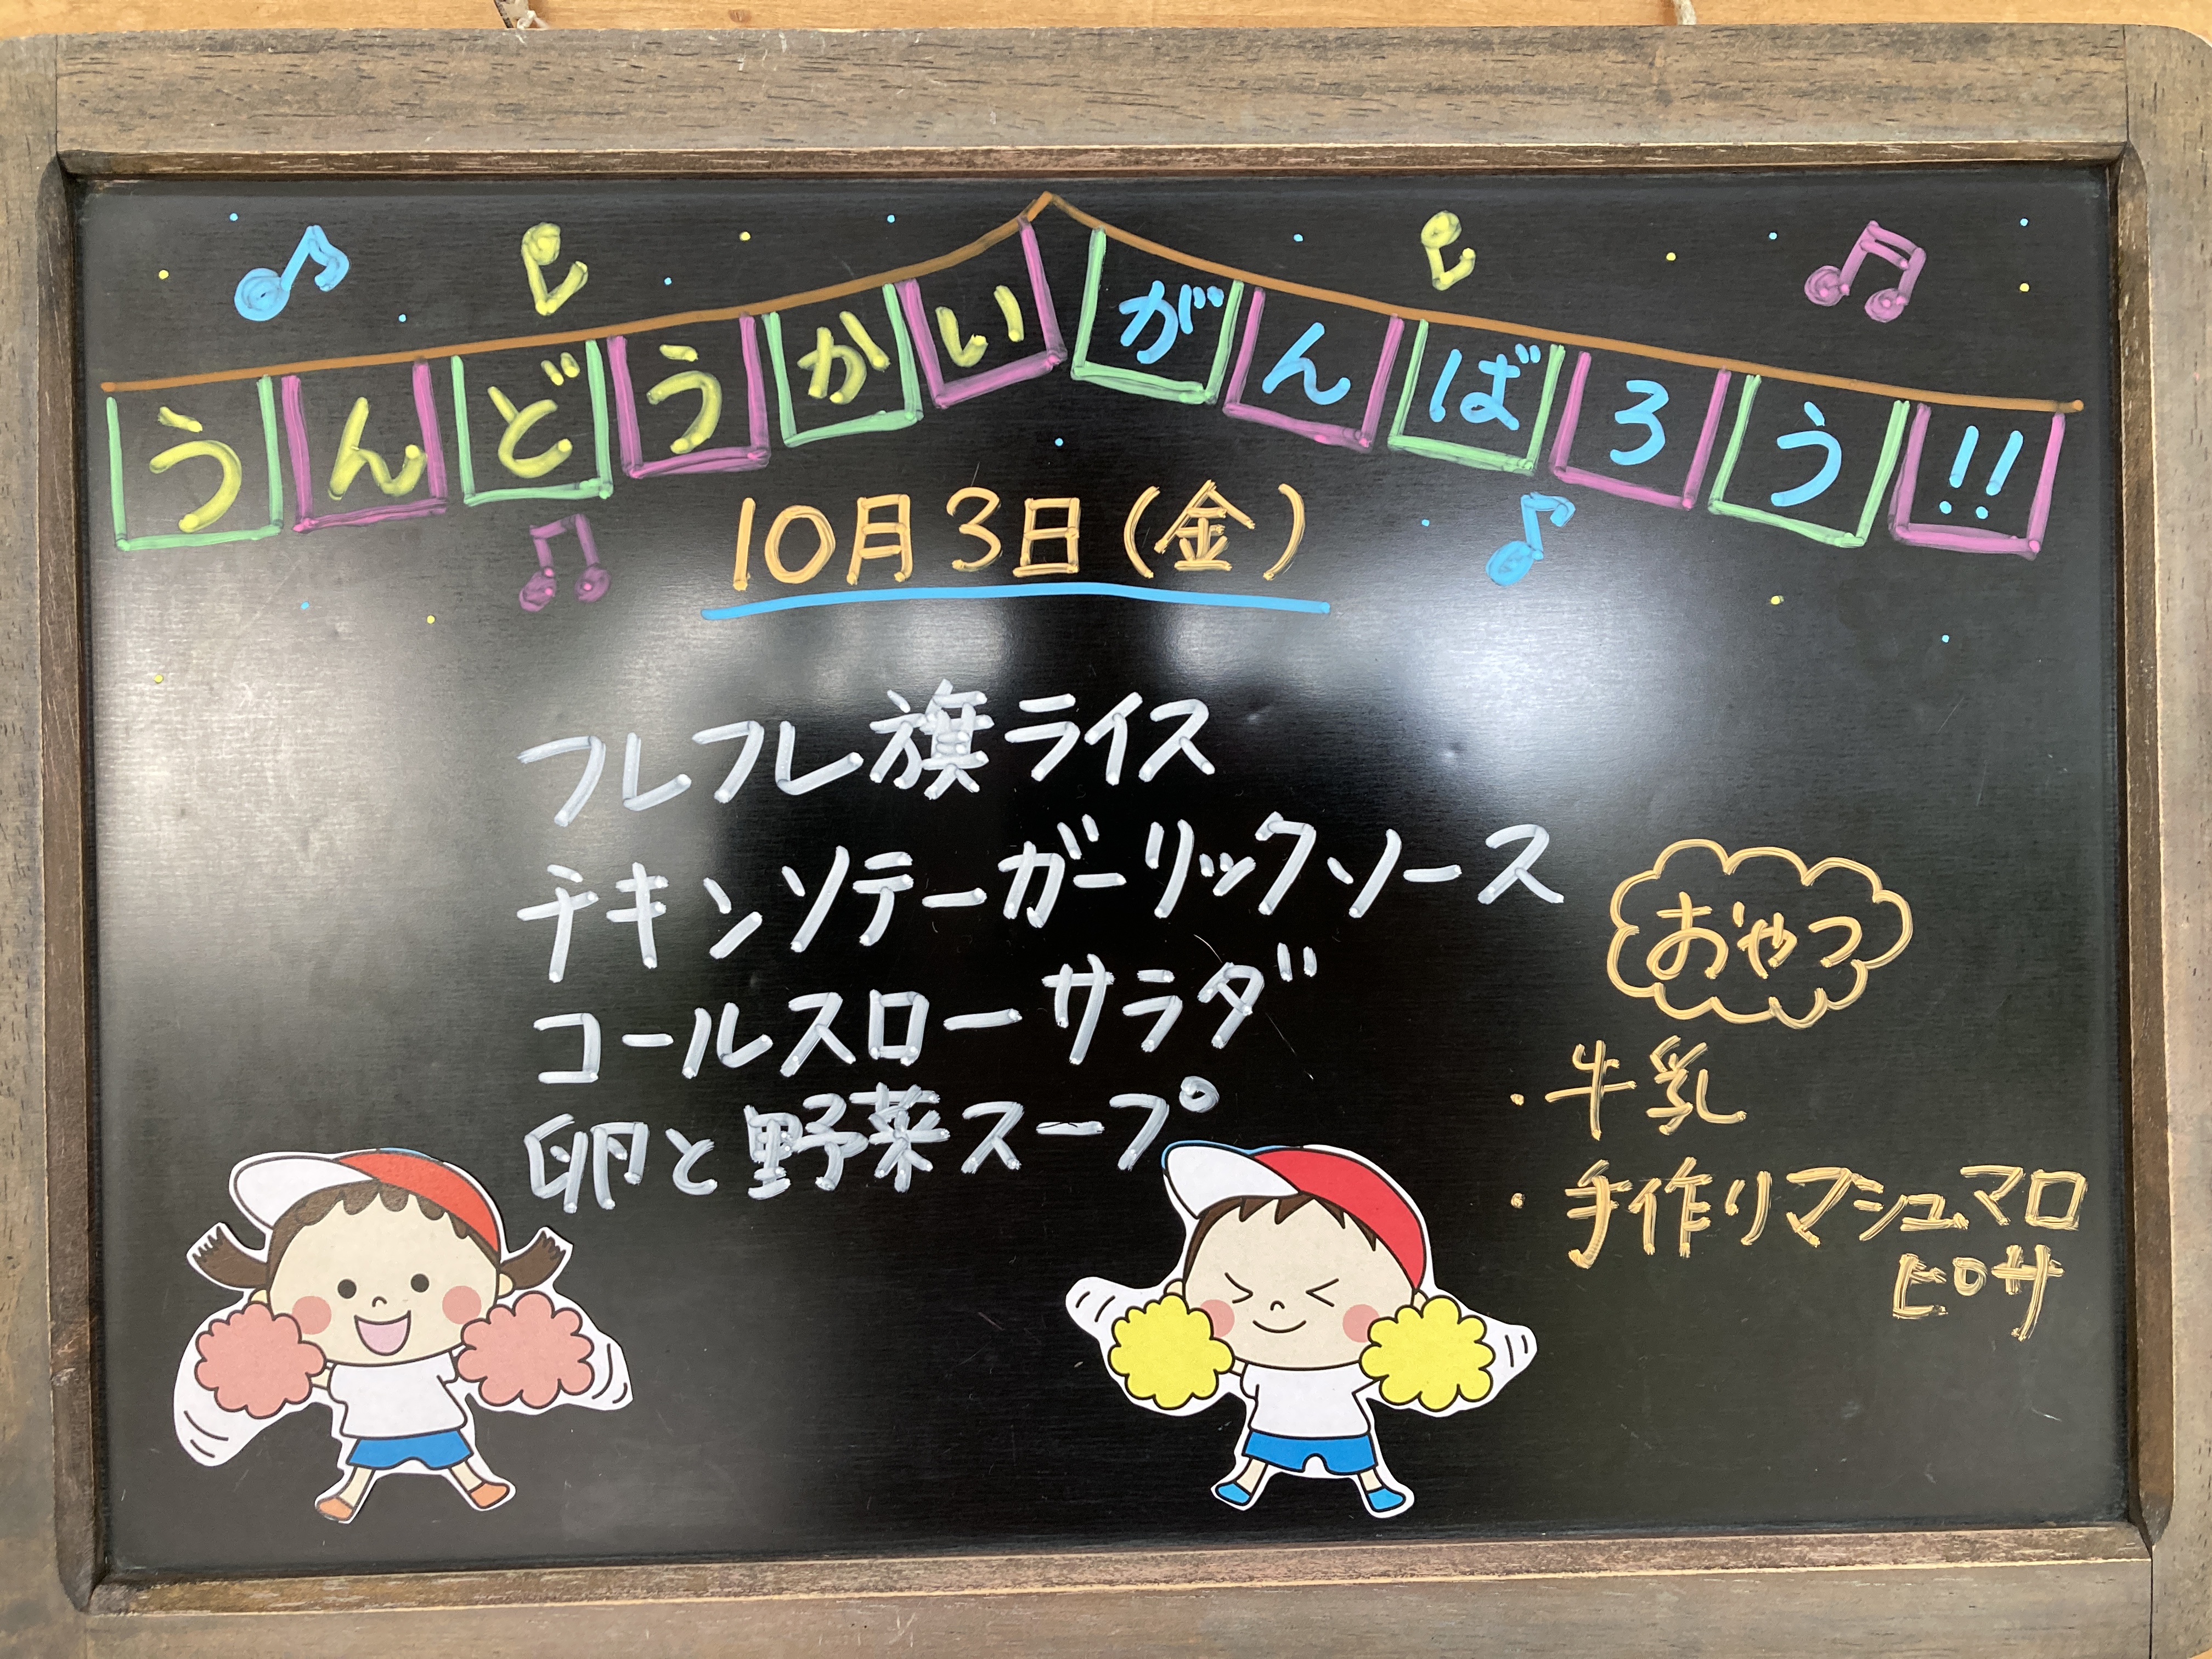 うんどうかい がんばろう!!
10月3日(金)
フレフレ旗ライス
チキンソテーガーリックソース
コールスローサラダ
卵と野菜スープ
おやつ
・牛乳
・手作りマシュマロ
ピザ